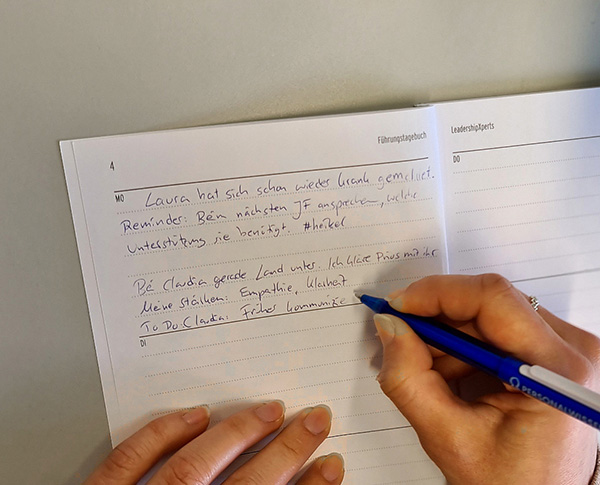 Führungstagebuch
4
MO
Laura hat sich schon wieder krank gemeldet.
Reminder: Beim nächsten JF ansprechen, welche
Unterstützung sie benötigt. #heikel
Bei Claudia gerade Land unter. Ich kläre Prios mit ihr
Meine Stärken: Empathie, Klarheit
To Do Claudia: Früher kommunizie
DI
LeadershipXperts
DO
PERSONALWISSE